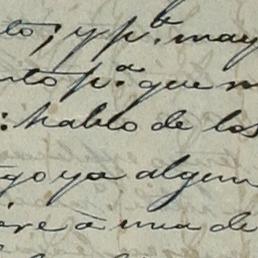 to; y p.r may
nto p.a que m
: hablo de los
go ya algun
ire à una de